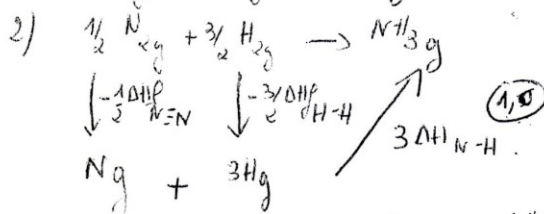 2) 1/2 N2g + 3/2 H2g → NH3g
↓ -1/2 ΔHf N≡N ↓ -3/2 ΔHf H-H 1,0
3 ΔH N-H.
Ng + 3Hg